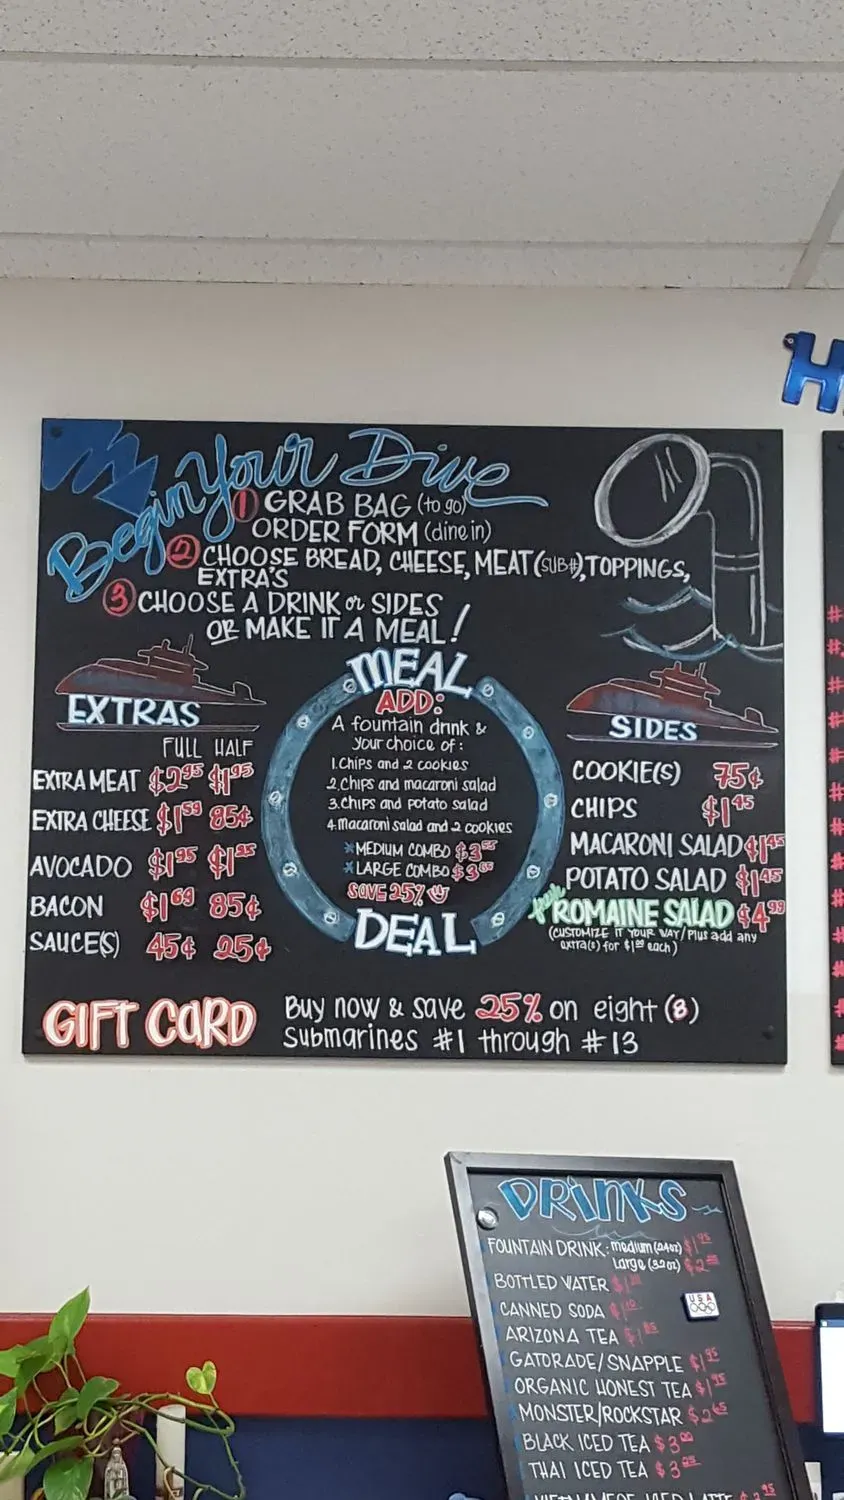 H
Begin Your Dive
1 GRAB BAG (to go)
ORDER FORM (dine in)
2 CHOOSE BREAD, CHEESE, MEAT (SUB#), TOPPINGS,
EXTRA'S
3 CHOOSE A DRINK or SIDES
OR MAKE IT A MEAL!
EXTRAS
FULL HALF
EXTRA MEAT $2.95 $1.95
EXTRA CHEESE $1.59 85¢
AVOCADO $1.95
BACON $1.69 85¢
SAUCE(S) 45¢ 25¢
MEAL
ADD:
A fountain drink &
your choice of:
1. Chips and 2 cookies
2. Chips and macaroni salad
3. Chips and potato salad
4. macaroni salad and 2 cookies
*MEDIUM COMBO
*LARGE COMBO
SAVE 25%
DEAL
SIDES
COOKIE(S) 75¢
CHIPS $1.45
MACARONI SALAD $1.45
POTATO SALAD $1.45
ROMAINE SALAD $4.99
(CUSTOMIZE IT YOUR WAY/Plus add any
extra(s) for $1.00 each)
GIFT CARD
Buy now & save 25% on eight (8)
Submarines #1 through #13
DRINKS
FOUNTAIN DRINK: medium (24oz) $1.95
Large (32oz)
BOTTLED WATER
CANNED SODA
ARIZONA TEA
GATORADE/SNAPPLE $1.95
ORGANIC HONEST TEA $1.95
MONSTER/ROCKSTAR
BLACK ICED TEA
THAI ICED TEA
VIETNAMESE ICED LATTE
USA